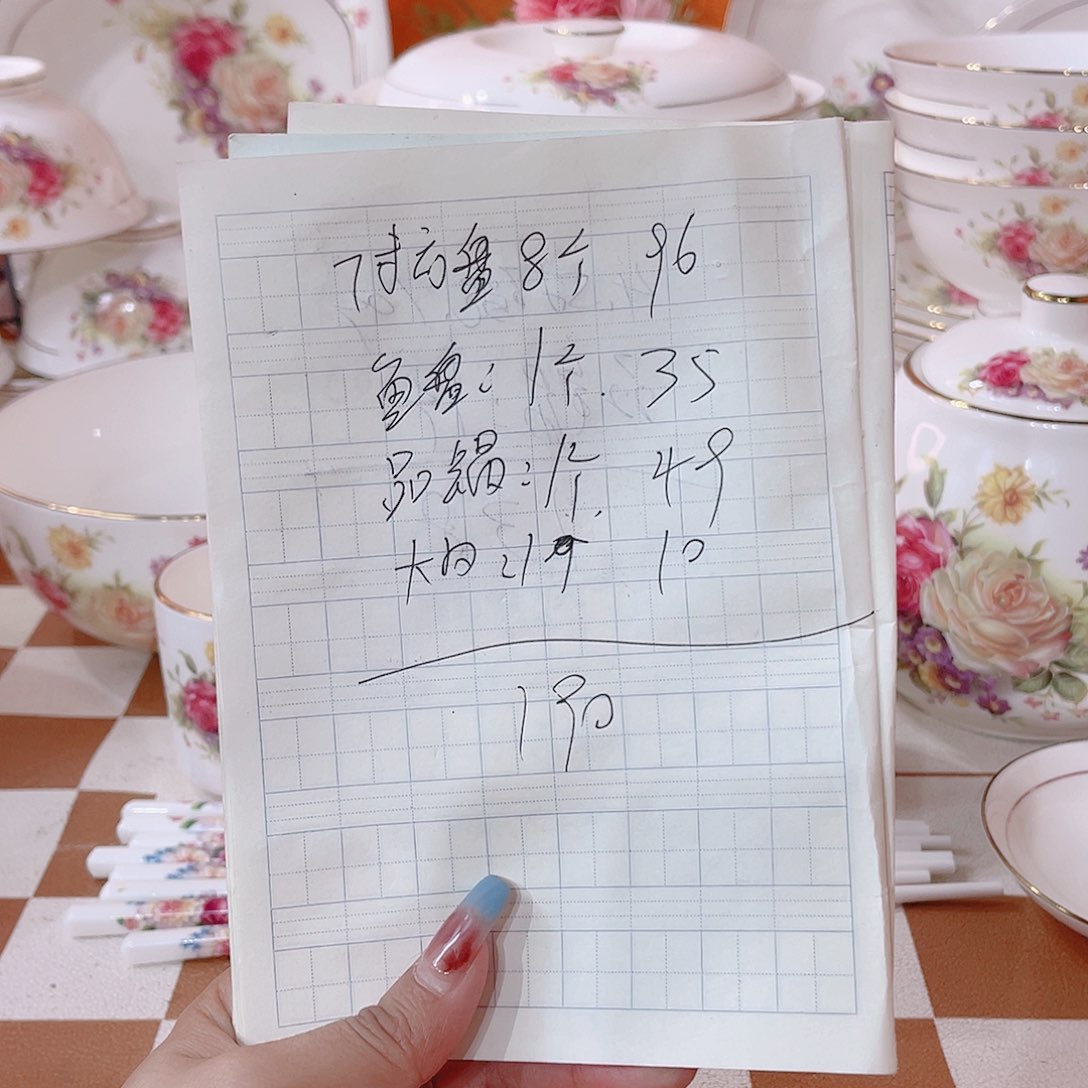 7寸方盘8个 96
鱼盘：1个. 35
品锅：1个. 49
大勺：1个 10
190